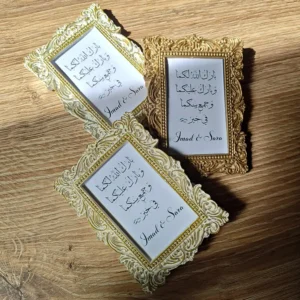 بارك الله لكما
و بارك عليكما
و جمع بينكما
في خير
Imad & Sara
بارك الله لكما
و بارك عليكما
و جمع بينكما
في خير
Imad & Sara
بارك الله لكما
و بارك عليكما
و جمع بينكما
في خير
Imad & Sara